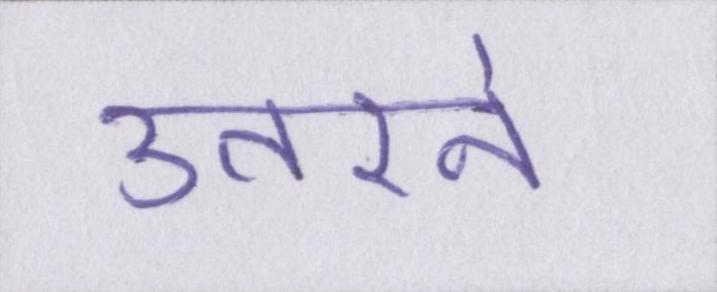 उतरने